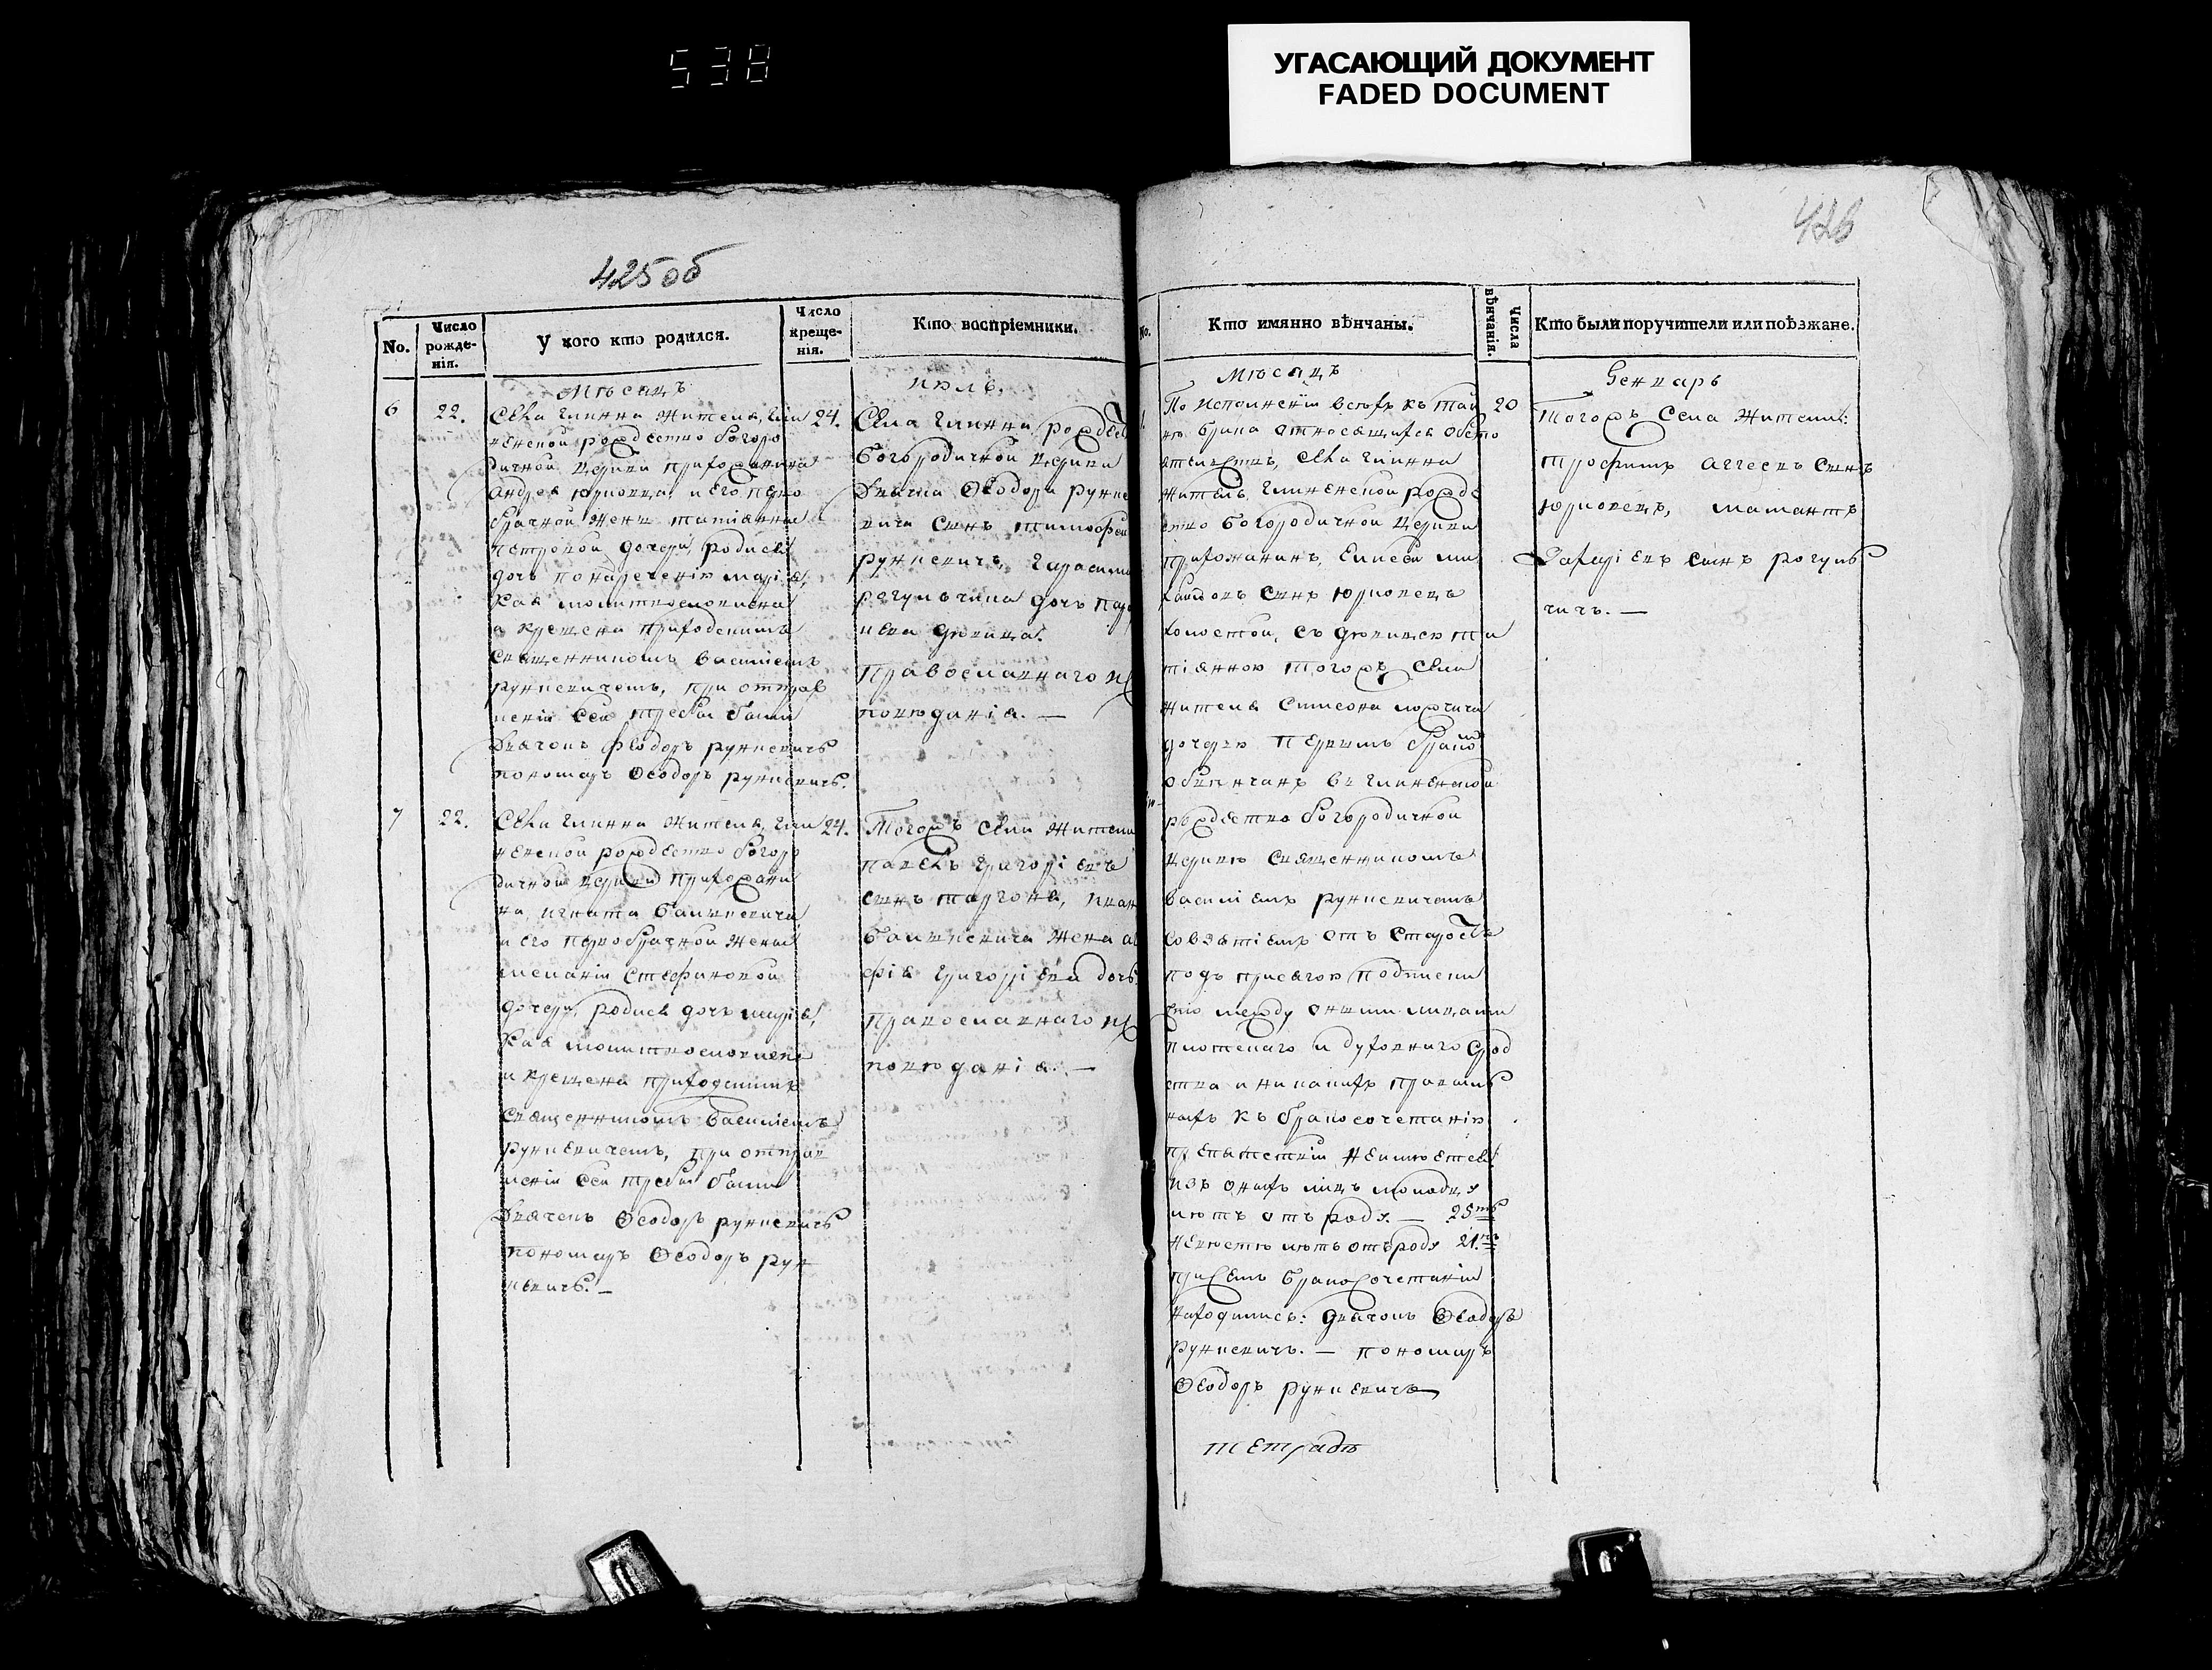 538
УГАСАЮЩИЙ ДОКУМЕНТ
FADED DOCUMENT
425об
No.
Число рожде-нія.
У кого кто родился.
Число креще-нія.
Кто воспріемники.
Мѣсацъ
Июль.
6
22.
24.
Села Глинна жителя, Гли
ненской рождество богоро
дичной церкви прихожанина
андрея юрковца, и его перво
брачной жены татіанны
петровой дочери, родися
дочь по нареченію маріа,
Каа молитвословлена
и крещена приходскимъ
Священникомъ василіемъ
рункевичемъ, при отправ
леніи сея требы были
Діачокъ феодоръ рункевичъ
пономарь Ѳеодоръ рункевичъ.
Села Глинна рождест
богородичной церкви
Діачка Ѳеодора рунке
вича сынъ тимофей
рункевичъ, Гарасима
рогульчика дочь пара
девица.
Православнаго
поведаніа. —
7
22.
24.
Села Глинна жителя, Гли
ненской рождество богоро
дичной церкви прихожани
на, игната
и его первобрачной жены
меланіи Стефановой
дочери, родися дочь маріа,
Каа молитвословлена
и крещена приходскимъ
Священникомъ Василіемъ
рункевичемъ, при отправ
леніи сея требы были
Діачокъ Ѳеодоръ рункевичъ
пономарь Ѳеодоръ рун
кевичъ. —
Тогожъ села жители
павелъ Григоріевъ
сынъ иван
жена
Григорьева дочь.
Православнаго
поведаніа. —
426
No.
Кто имянно вѣнчаны.
Числа вѣнчанія.
Кто были поручители или поѣзжане.
Мѣсацъ
Генварь
20
По исполненіи всехъ къ тай
не брака относящихся обсто
ятелствъ, села Глинна
житель, Глиненской рожде
ство богородичной церкви
прихожанинъ, Елисей ми
хайловъ сынъ юрковецъ
холостой, съ девицею та
тіанною тогожъ села
жителя Симеона
дочерю первымъ бракомъ
обвенчанъ въ Глиненской
рождество богородичной
церкве Священникомъ
василіемъ рункевичемъ
Совзятіемъ отъ старостъ
подъ присягою подписки
что между оными лицами
плотскаго и духовнаго срод
ства и никакихъ правиль
ныхъ къ бракосочетанію
препятствій неимеется:
изъ оныхъ лицъ молодцу
летъ отъ роду. — 25ть
невесте летъ отъ роду 21.
при семъ бракосочетаніи
находились: діачокъ Ѳеодоръ
рункевичъ. — пономарь
Ѳеодоръ рункевичъ
тетрадь
Тогожъ села жители:
трофимъ аггеевъ сынъ
юрковецъ,
Захаріевъ сынъ рогуль
чикъ. —